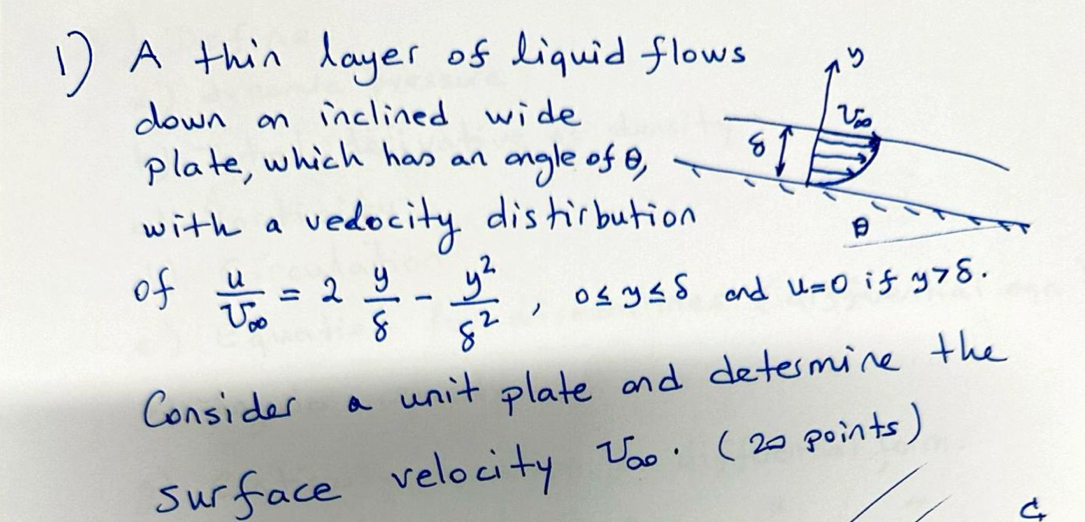 1) A thin layer of liquid flows
down on inclined wide
plate, which has an angle of θ,
with a vedocity distirbution
of u/U∞ = 2 y/δ - y²/δ², 0≤y≤δ and u=0 if y>δ.
Consider a unit plate and determine the
surface velocity U∞. (20 points)
y
U∞
δ
θ